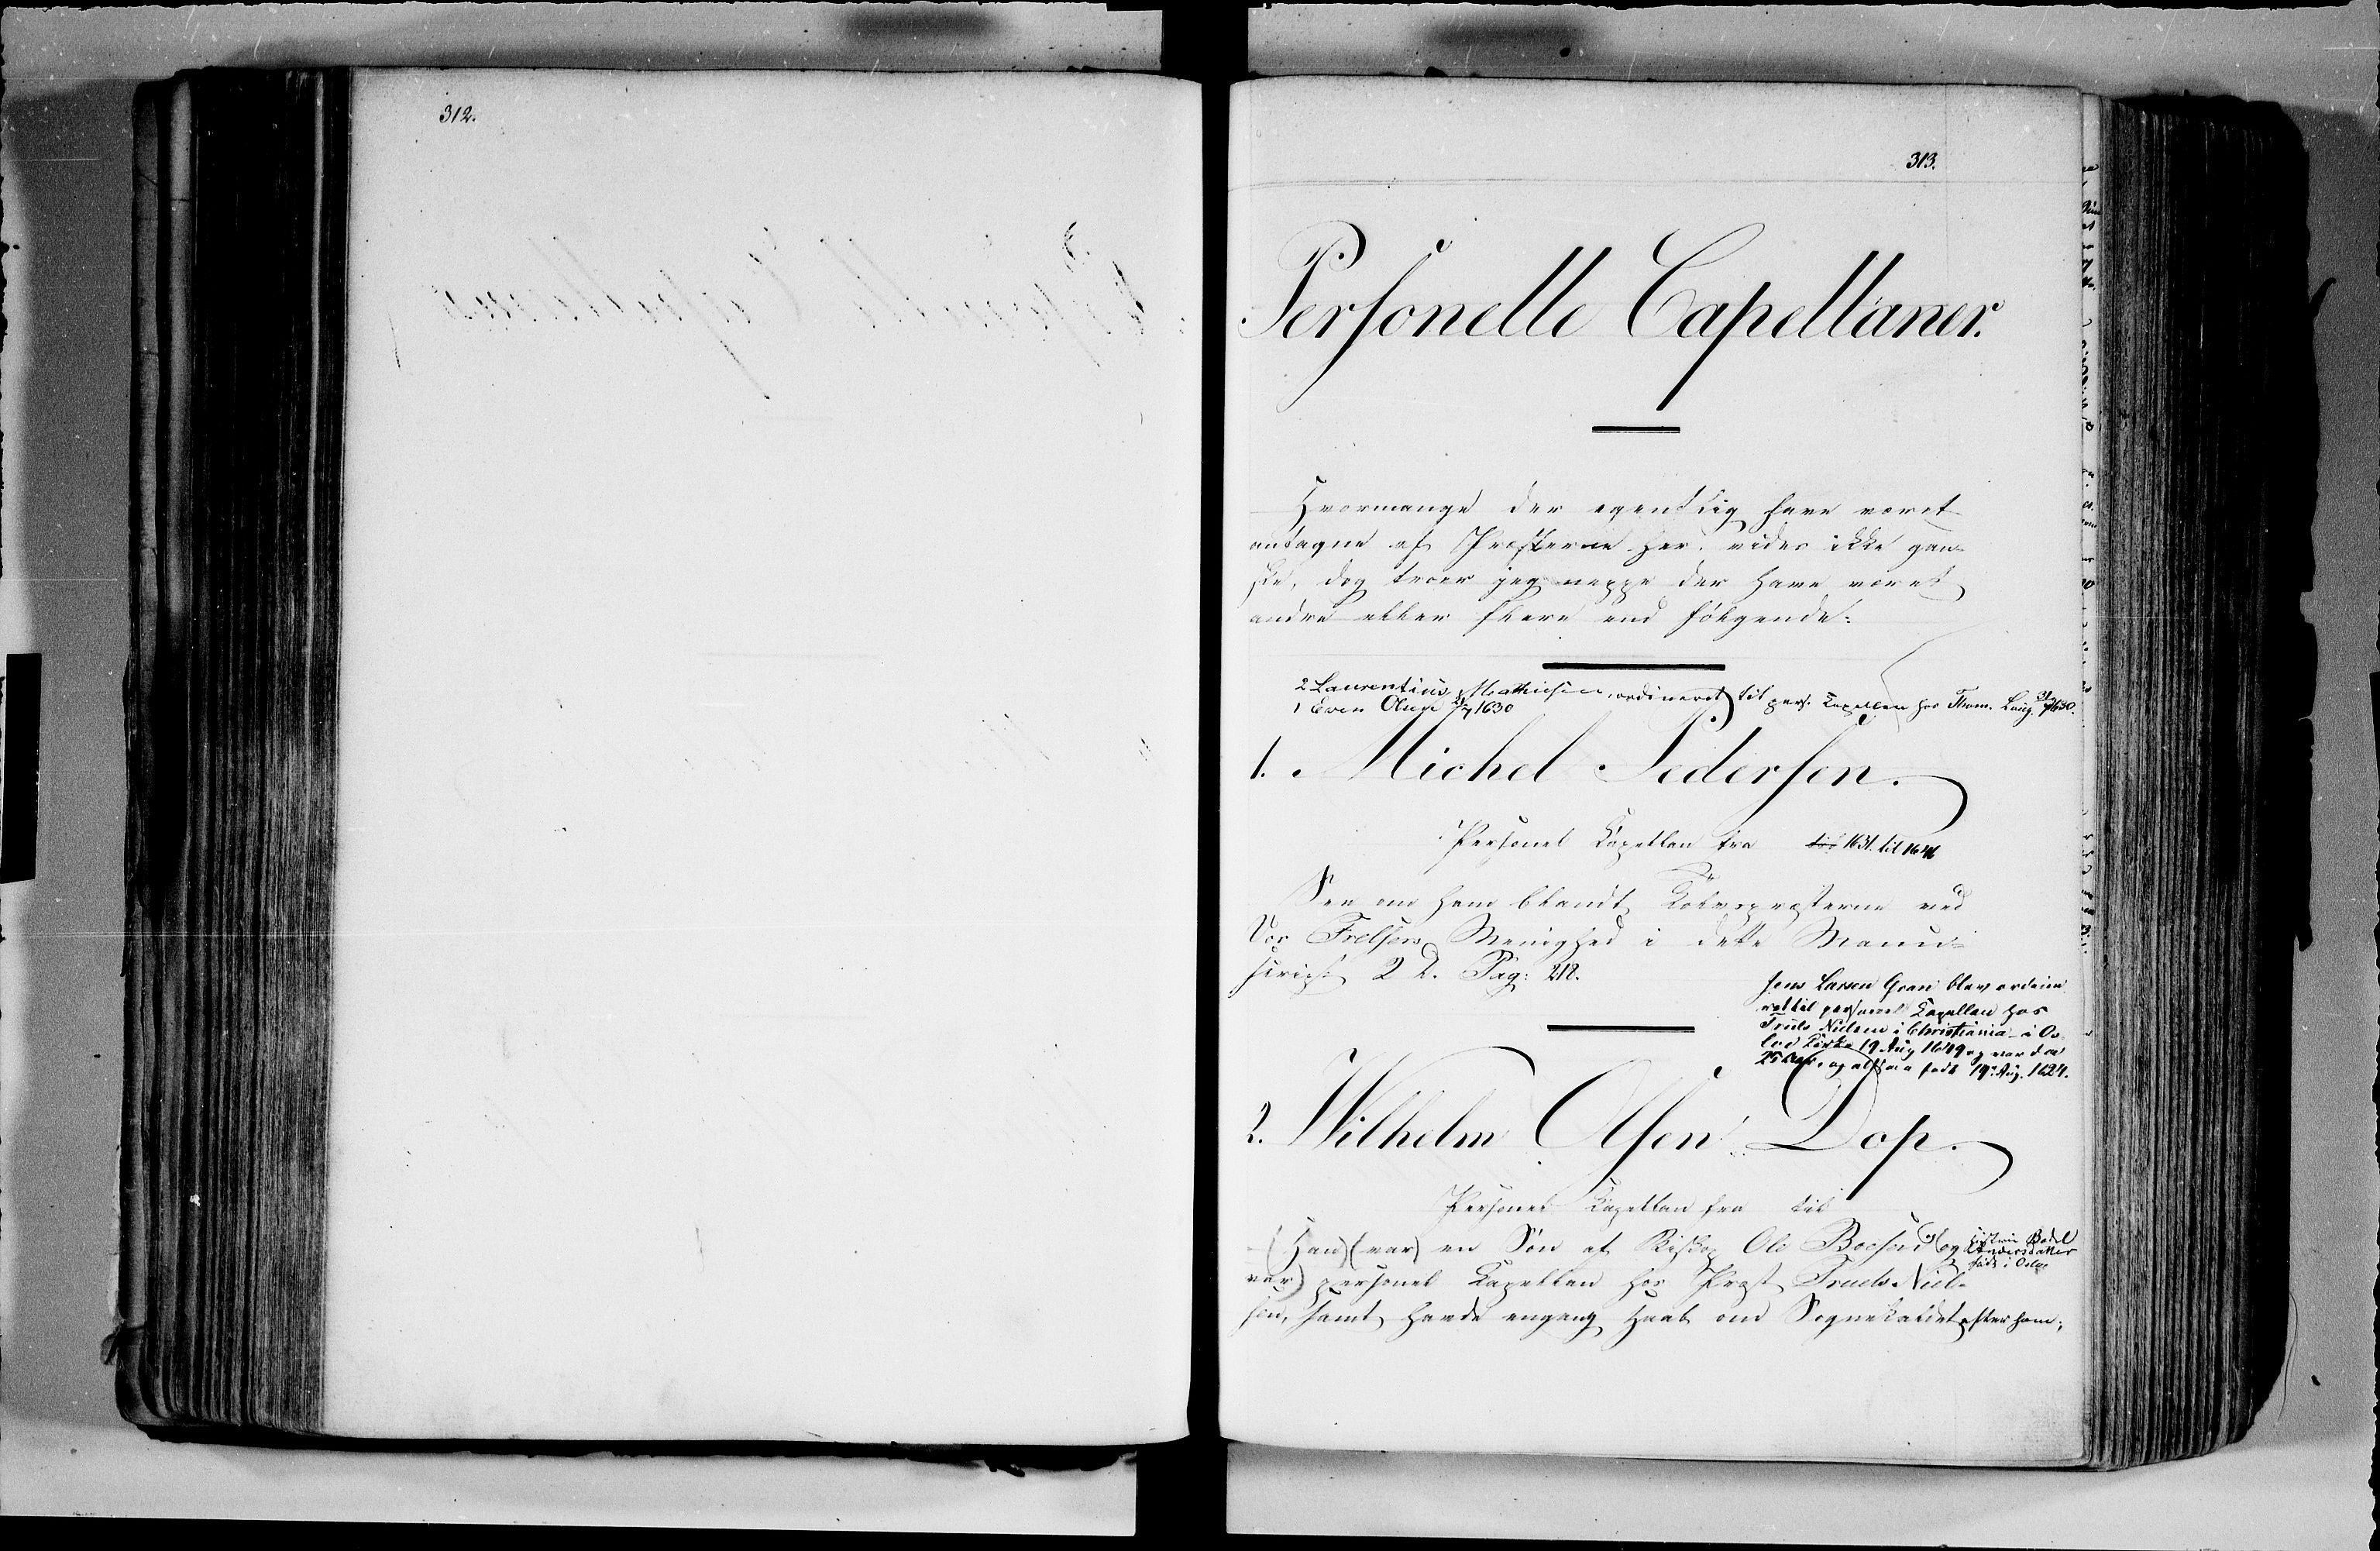 312.
313.
Personelle Capellaner.
Hvormange der egentlig have været
antagne af Præsterne her, vides ikke gan-
ske, dog troer jeg neppe der have været
andre eller flere end følgende:
2 Laurentius Mathiesen, ordineret til pers. Kapellan hos Thom. Lang. 1630.
1 Even Olsen 1630
1. Michel Pedersen.
Personel Kapellan fra til 1631. til 1646
See om ham blandt Sognepræsterne ved
Vor Frelsers Menighed i dette Manu-
script 2 D. Pag: 212.
Jens Larsen Gran blev ordine
ret til personel Kapellan hos
Truls Nielsen i Christiania i Os-
loe Kirke 19 Aug 1649 og var da
25 Aar, og altsaa født 19. Aug. 1624.
2. Wilhelm Olsen Dop.
Personel Kapellan fra til
(Han) (var) en Søn af Biskop Ole Boesen og Hustru Bodel
Andersdatter
født i Oslo
var) personel Kapellan hos Præst Truels Niel-
sen, samt havde engang Haab om Sognekaldet efter ham;